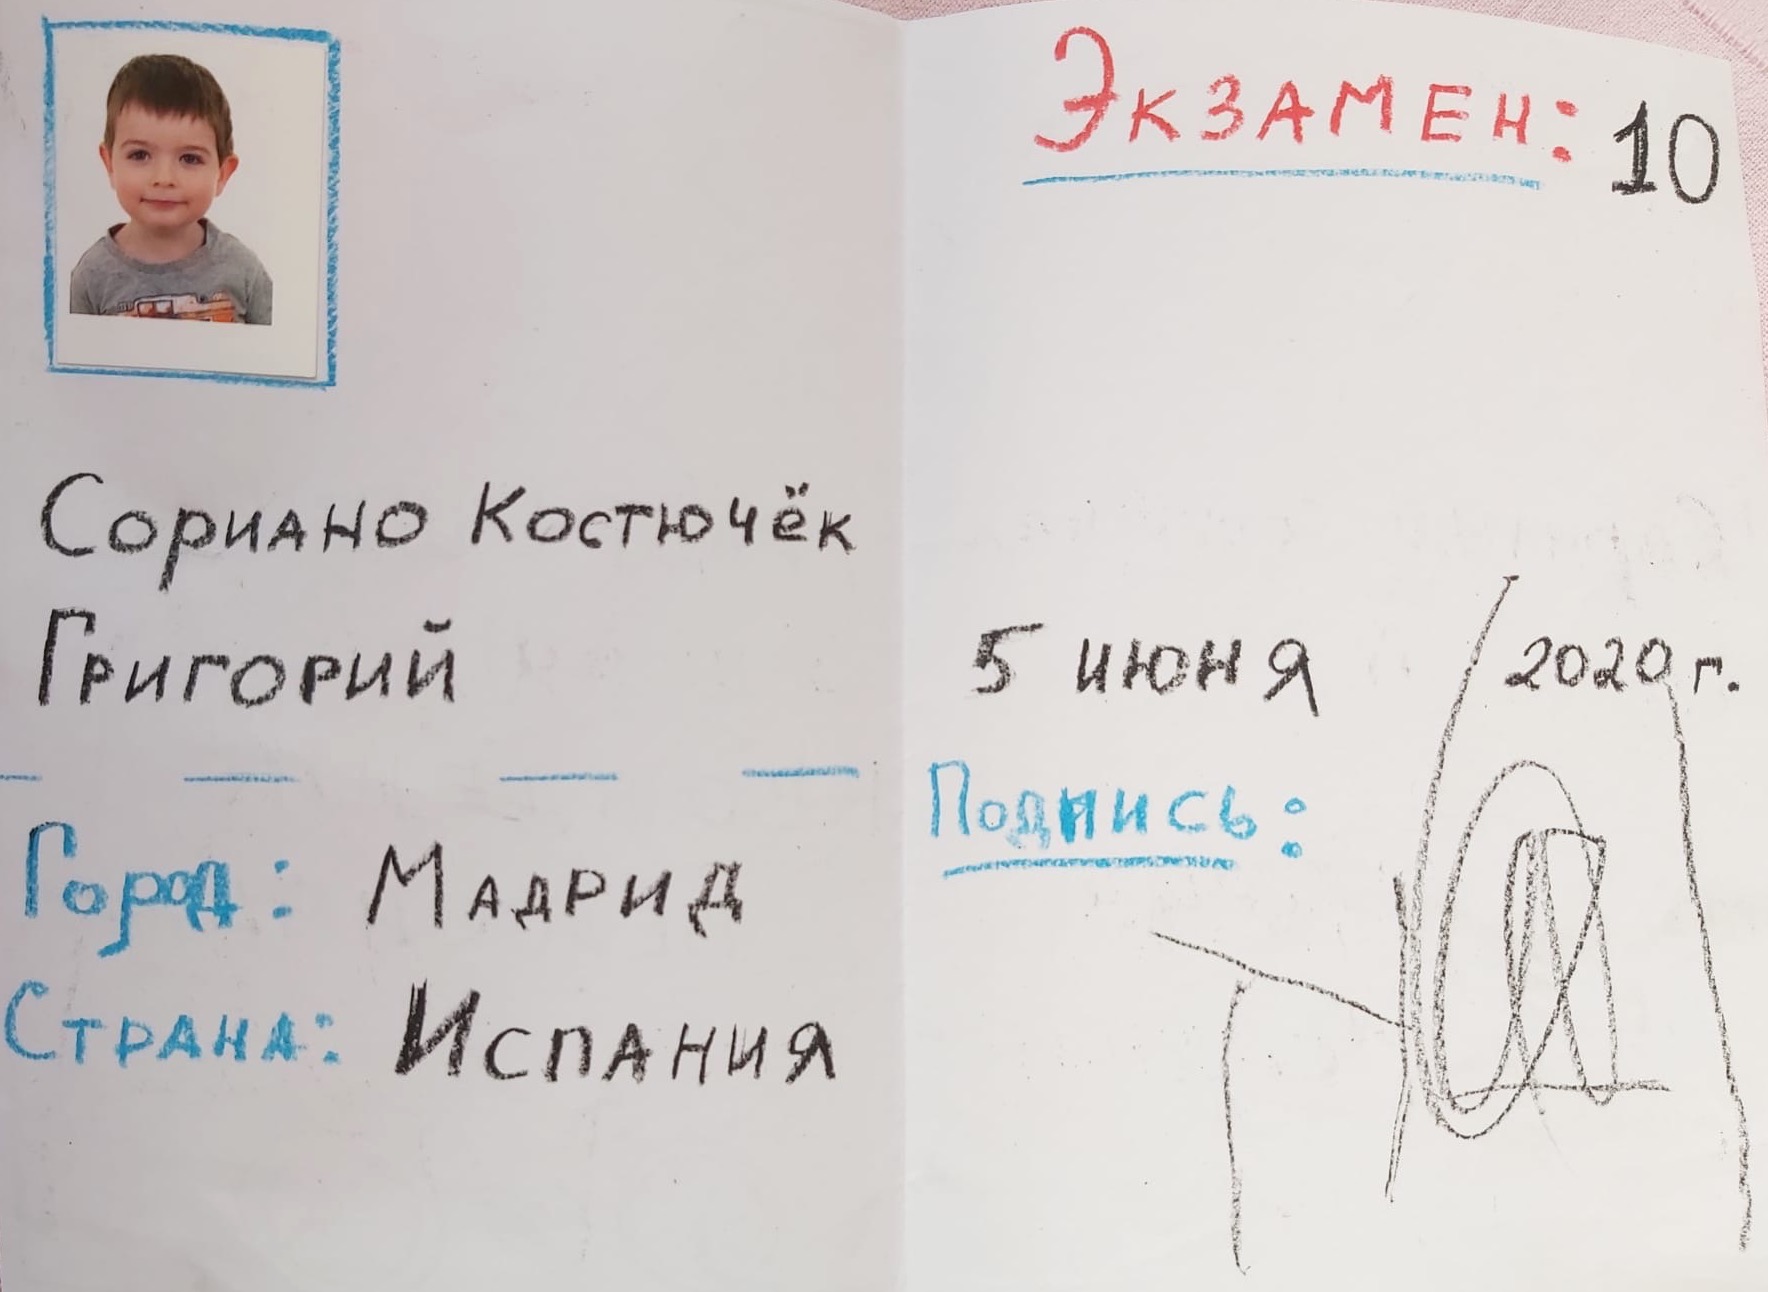 Сориано Костючёк
Григорий
Город: Мадрид
Страна: Испания
Экзамен: 10
5 июня 2020 г.
Подпись: